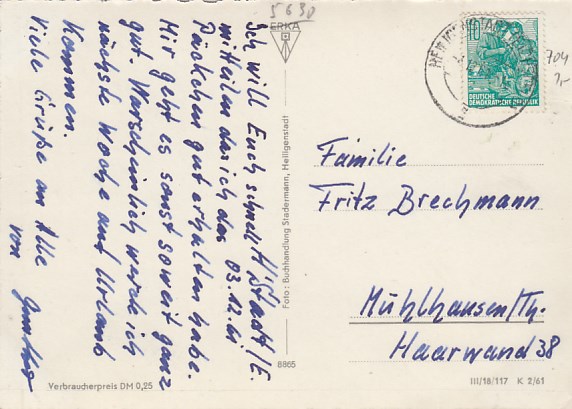 5630
ERKA
H/Stadt/E.
03.12.61
Ich will Euch schnell
mitteilen das ich das
Päckchen gut erhalten habe.
Mir geht es sonst soweit ganz
gut. Warscheinlich werde ich
nächste Woche auf Urlaub
kommen.
Viele Grüße an Alle
von
Foto: Buchhandlung Stadermann, Heiligenstadt
8865
Verbraucherpreis DM 0,25
10
DEUTSCHE
DEMOKRATISCHE REPUBLIK
704
Familie
Fritz Brechmann
Mühlhausen/Th.
Haarwand 38
III/18/117 K 2/61